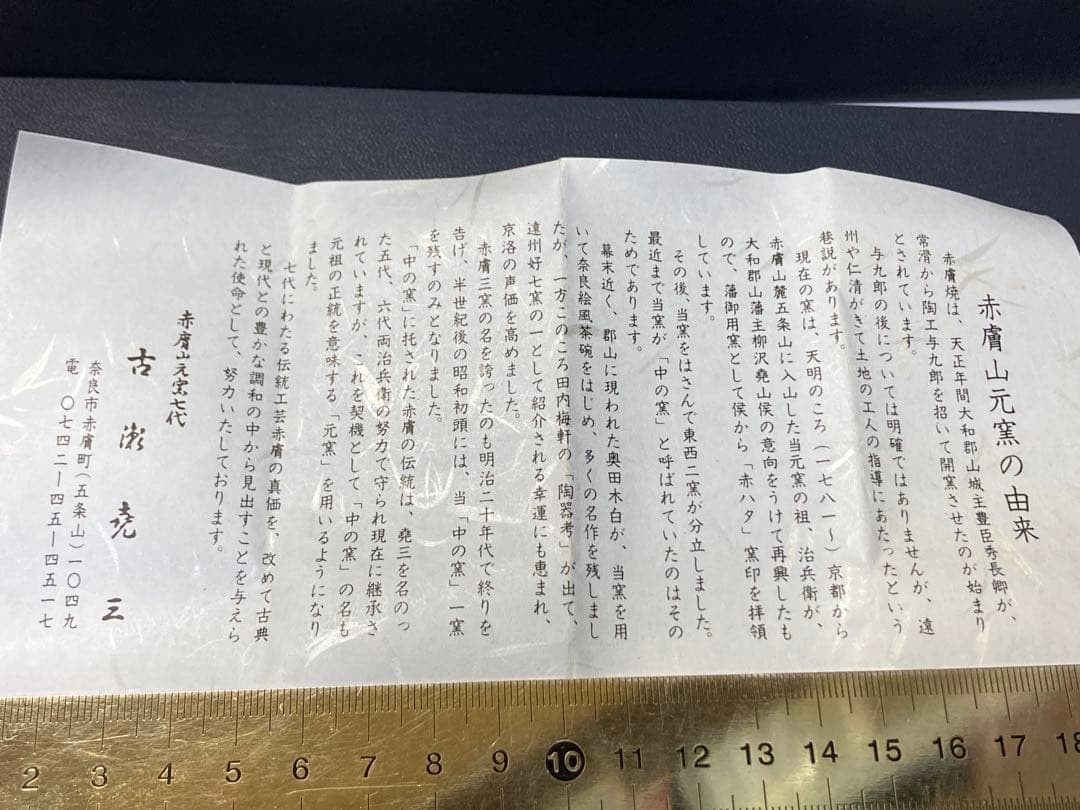 赤膚山元窯の由来
赤膚焼は、天正年間大和郡山城主豊臣秀長卿が、
常滑から陶工与九郎を招いて開窯させたのが始まり
とされています。
与九郎の後については明確ではありませんが、遠
州や仁清がきて土地の工人の指導にあたったという
巷説があります。
現在の窯は、天明のころ(一七八一〜)京都から
赤膚山麓五条山に入山した当元窯の祖、治兵衛が、
大和郡山藩主柳沢堯山侯の意向をうけて再興したも
ので、藩御用窯として侯から「赤ハタ」窯印を拝領
しています。
その後、当窯をはさんで東西二窯が分立しました。
最近まで当窯が「中の窯」と呼ばれていたのはその
ためであります。
幕末近く、郡山に現われた奥田木白が、当窯を用
いて奈良絵風茶碗をはじめ、多くの名作を残しまし
たが、一方このころ田内梅軒の「陶器考」が出て、
遠州好七窯の一として紹介される幸運にも恵まれ、
京洛の声価を高めました。
赤膚三窯の名を誇ったのも明治二十年代で終りを
告げ、半世紀後の昭和初頭には、当「中の窯」一窯
を残すのみとなりました。
「中の窯」に托された赤膚の伝統は、堯三を名のっ
た五代、六代両治兵衛の努力で守られ現在に継承さ
れていますが、これを契機として「中の窯」の名も
元祖の正統を意味する「元窯」を用いるようになり
ました。
七代にわたる伝統工芸赤膚の真価を、改めて古典
と現代との豊かな調和の中から見出すことを与えら
れた使命として、努力いたしております。
赤膚山元窯七代
古瀬堯三
奈良市赤膚町(五条山)一〇四九
電 〇七四二ー四五ー四五一七
2 3 4 5 6 7 8 9 10 11 12 13 14 15 16 17 18